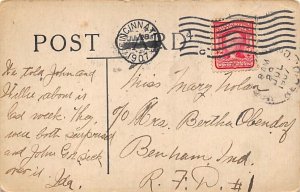 POST CARD
CINCINNATI
1907
We told John and
Willie about it
last week. They
were both surprised
and John Gr. Sick
over it.
Ida.
Miss Mary Nolan
c/o Mrs. Bertha Obendorf
Benham Ind.
R. F. D. #1